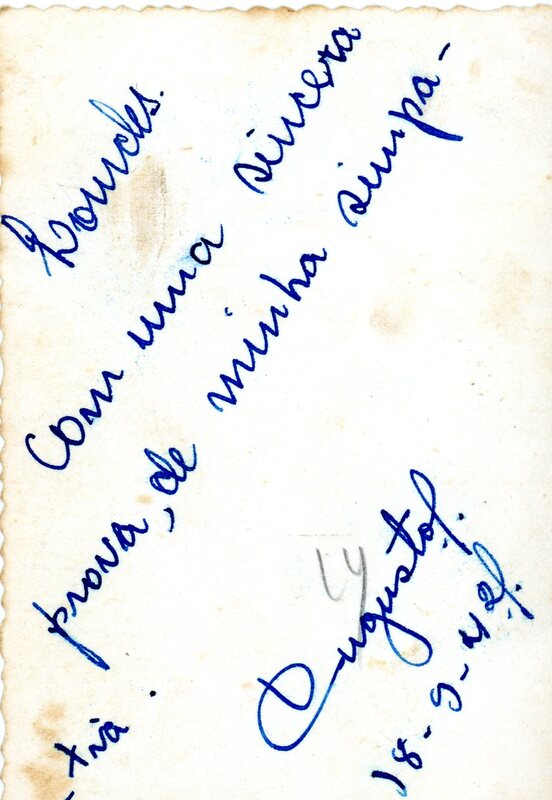 Lourdes.
Com uma sincera
prova, de minha simpa-
-tia.
Augusto.
18-9-42.
14